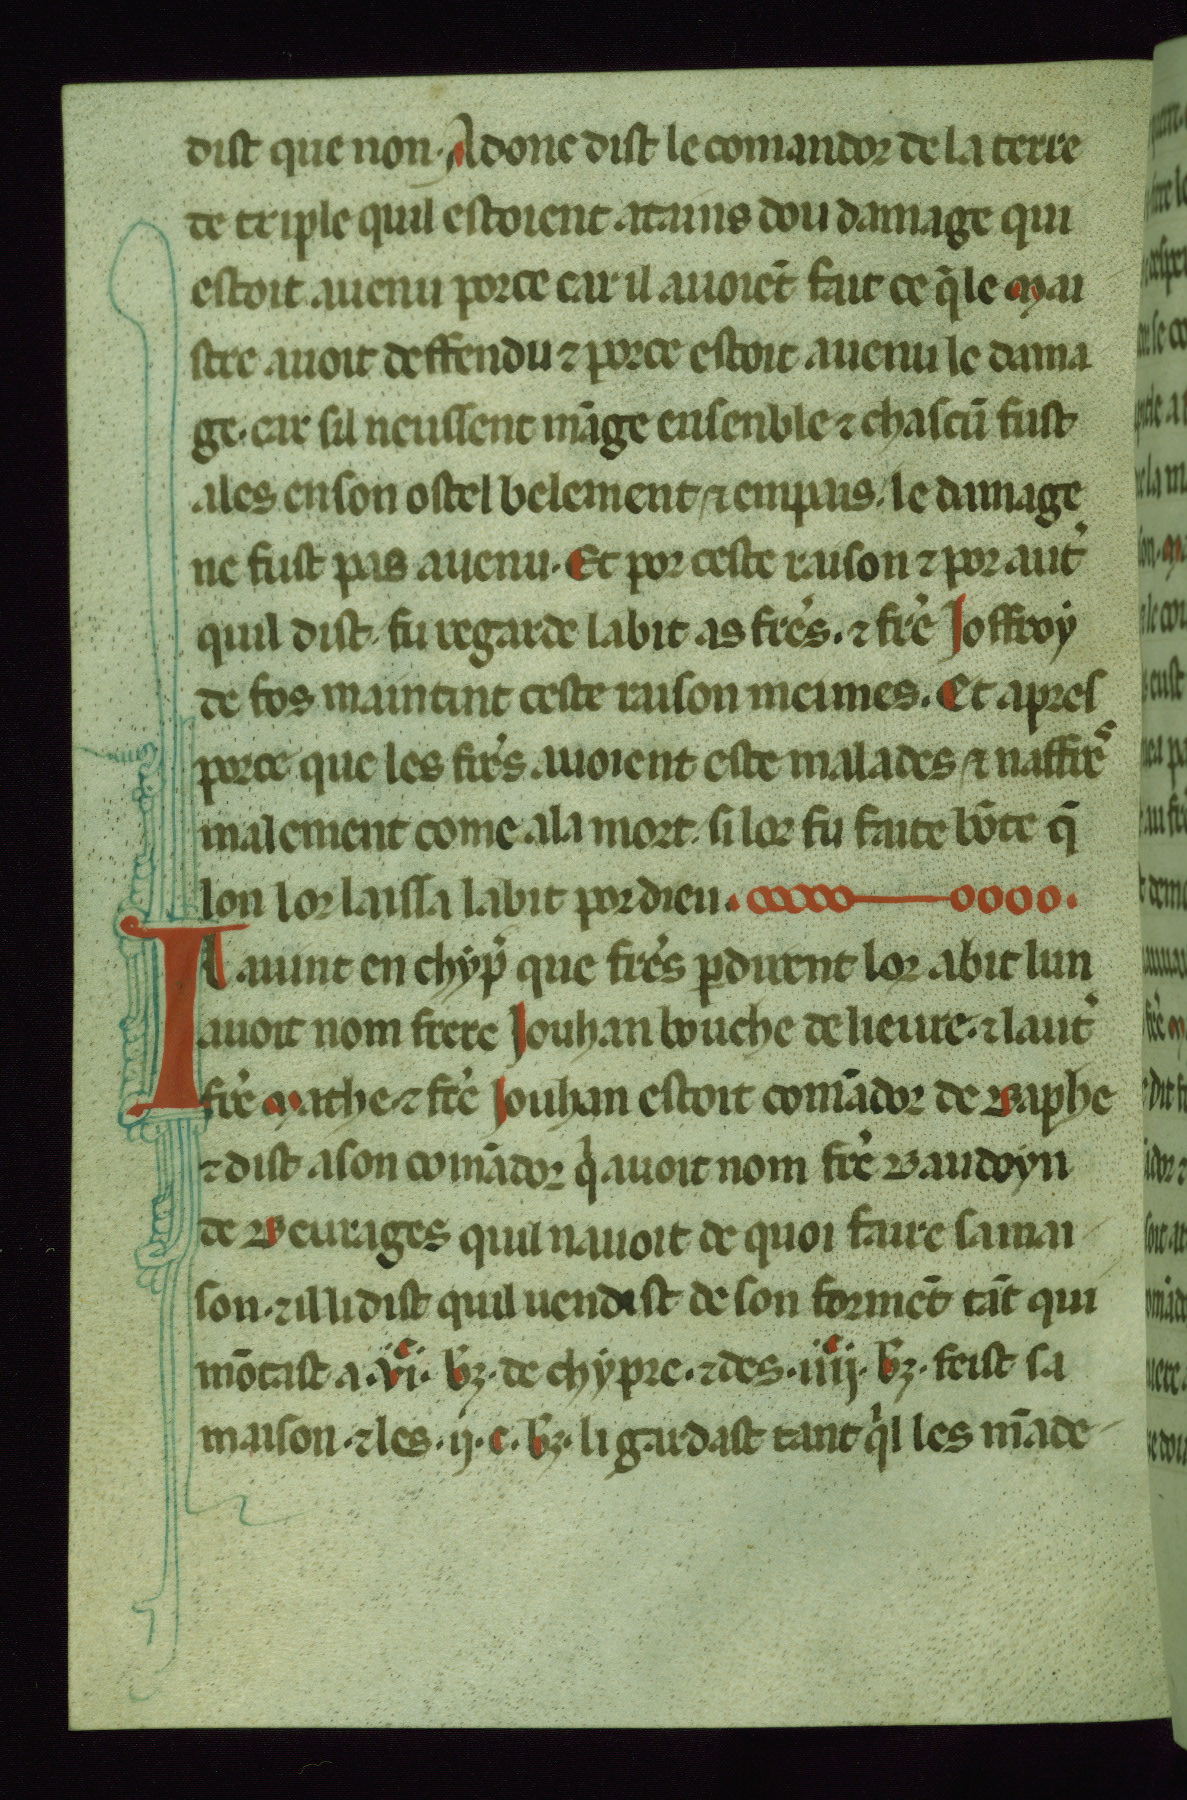 dist que non. Adonc dist le comandor de la terre
de triple quil estoient atains dou damage qui
estoit auenu porce car il auoiet̄ fait ce q̄ le mai
stre auoit deffendu ⁊ porce estoit auenu le dama
ge. car sil neussent māge ensenble ⁊ chascū fust
ales en son ostel belement ⁊ empais. le damage
ne fust pas auenu. Et por ceste raison ⁊ por autʼ
quil dist. fu regarde labit as freʼs. ⁊ freʼ Joffroy
de fos maintint ceste raison meimes. Et apres
porce que les freʼs auoient este malades ⁊ naffreˢ
malement come ala mort. si lor fu faite bōte q̄
lon lor laissa labit por dieu.
Il auint en chypʼ que freʼs ꝑdirent lor abit lun
auoit nom frere Jouhan bouche de lieure. ⁊ lautʼ
freʼ Mathe. ⁊ freʼ Jouhan estoit comādor de Baphe
⁊ dist a son comādor qⁱ auoit nom freʼ Baudoyn
de Beurages quil nauoit de quoi faire sa mai
son. ⁊ il li dist quil uendist de son formēt tāt qui
mōtast a .viᶜ. bz. de chypre. ⁊ des .iiijᶜ. bz. feist sa
maison. ⁊ les .ij. c. bz. li gardast tant qⁱl les māde